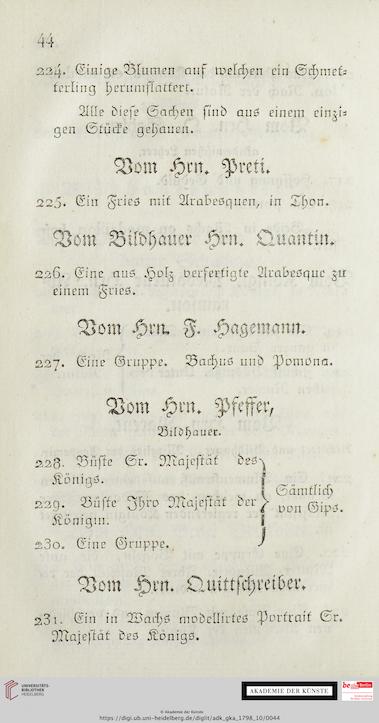 44
224. Einige Blumen auf welchen ein Schmet=
terling herumflattert.
Alle diese Sachen sind aus einem einzi=
gen Stücke gehauen.
Vom Hrn. Preti.
225. Ein Fries mit Arabesquen, in Thon.
Vom Bildhauer Hrn. Quantin.
226. Eine aus Holz verfertigte Arabesque zu
einem Fries.
Vom Hrn. F. Hagemann.
227. Eine Gruppe. Bachus und Pomona.
Vom Hrn. Pfeffer,
Bildhauer.
228. Büste Sr. Majestät des
Königs.
229. Büste Ihro Majestät der
Königin.
230. Eine Gruppe.
Sämtlich
von Gips.
Vom Hrn. Quittschreiber.
231. Ein in Wachs modellirtes Portrait Sr.
Majestät des Königs.
UNIVERSITÄTS-
BIBLIOTHEK
HEIDELBERG
AKADEMIE DER KÜNSTE
© Akademie der Künste
https://digi.ub.uni-heidelberg.de/diglit/adk_gka_1798_10/0044